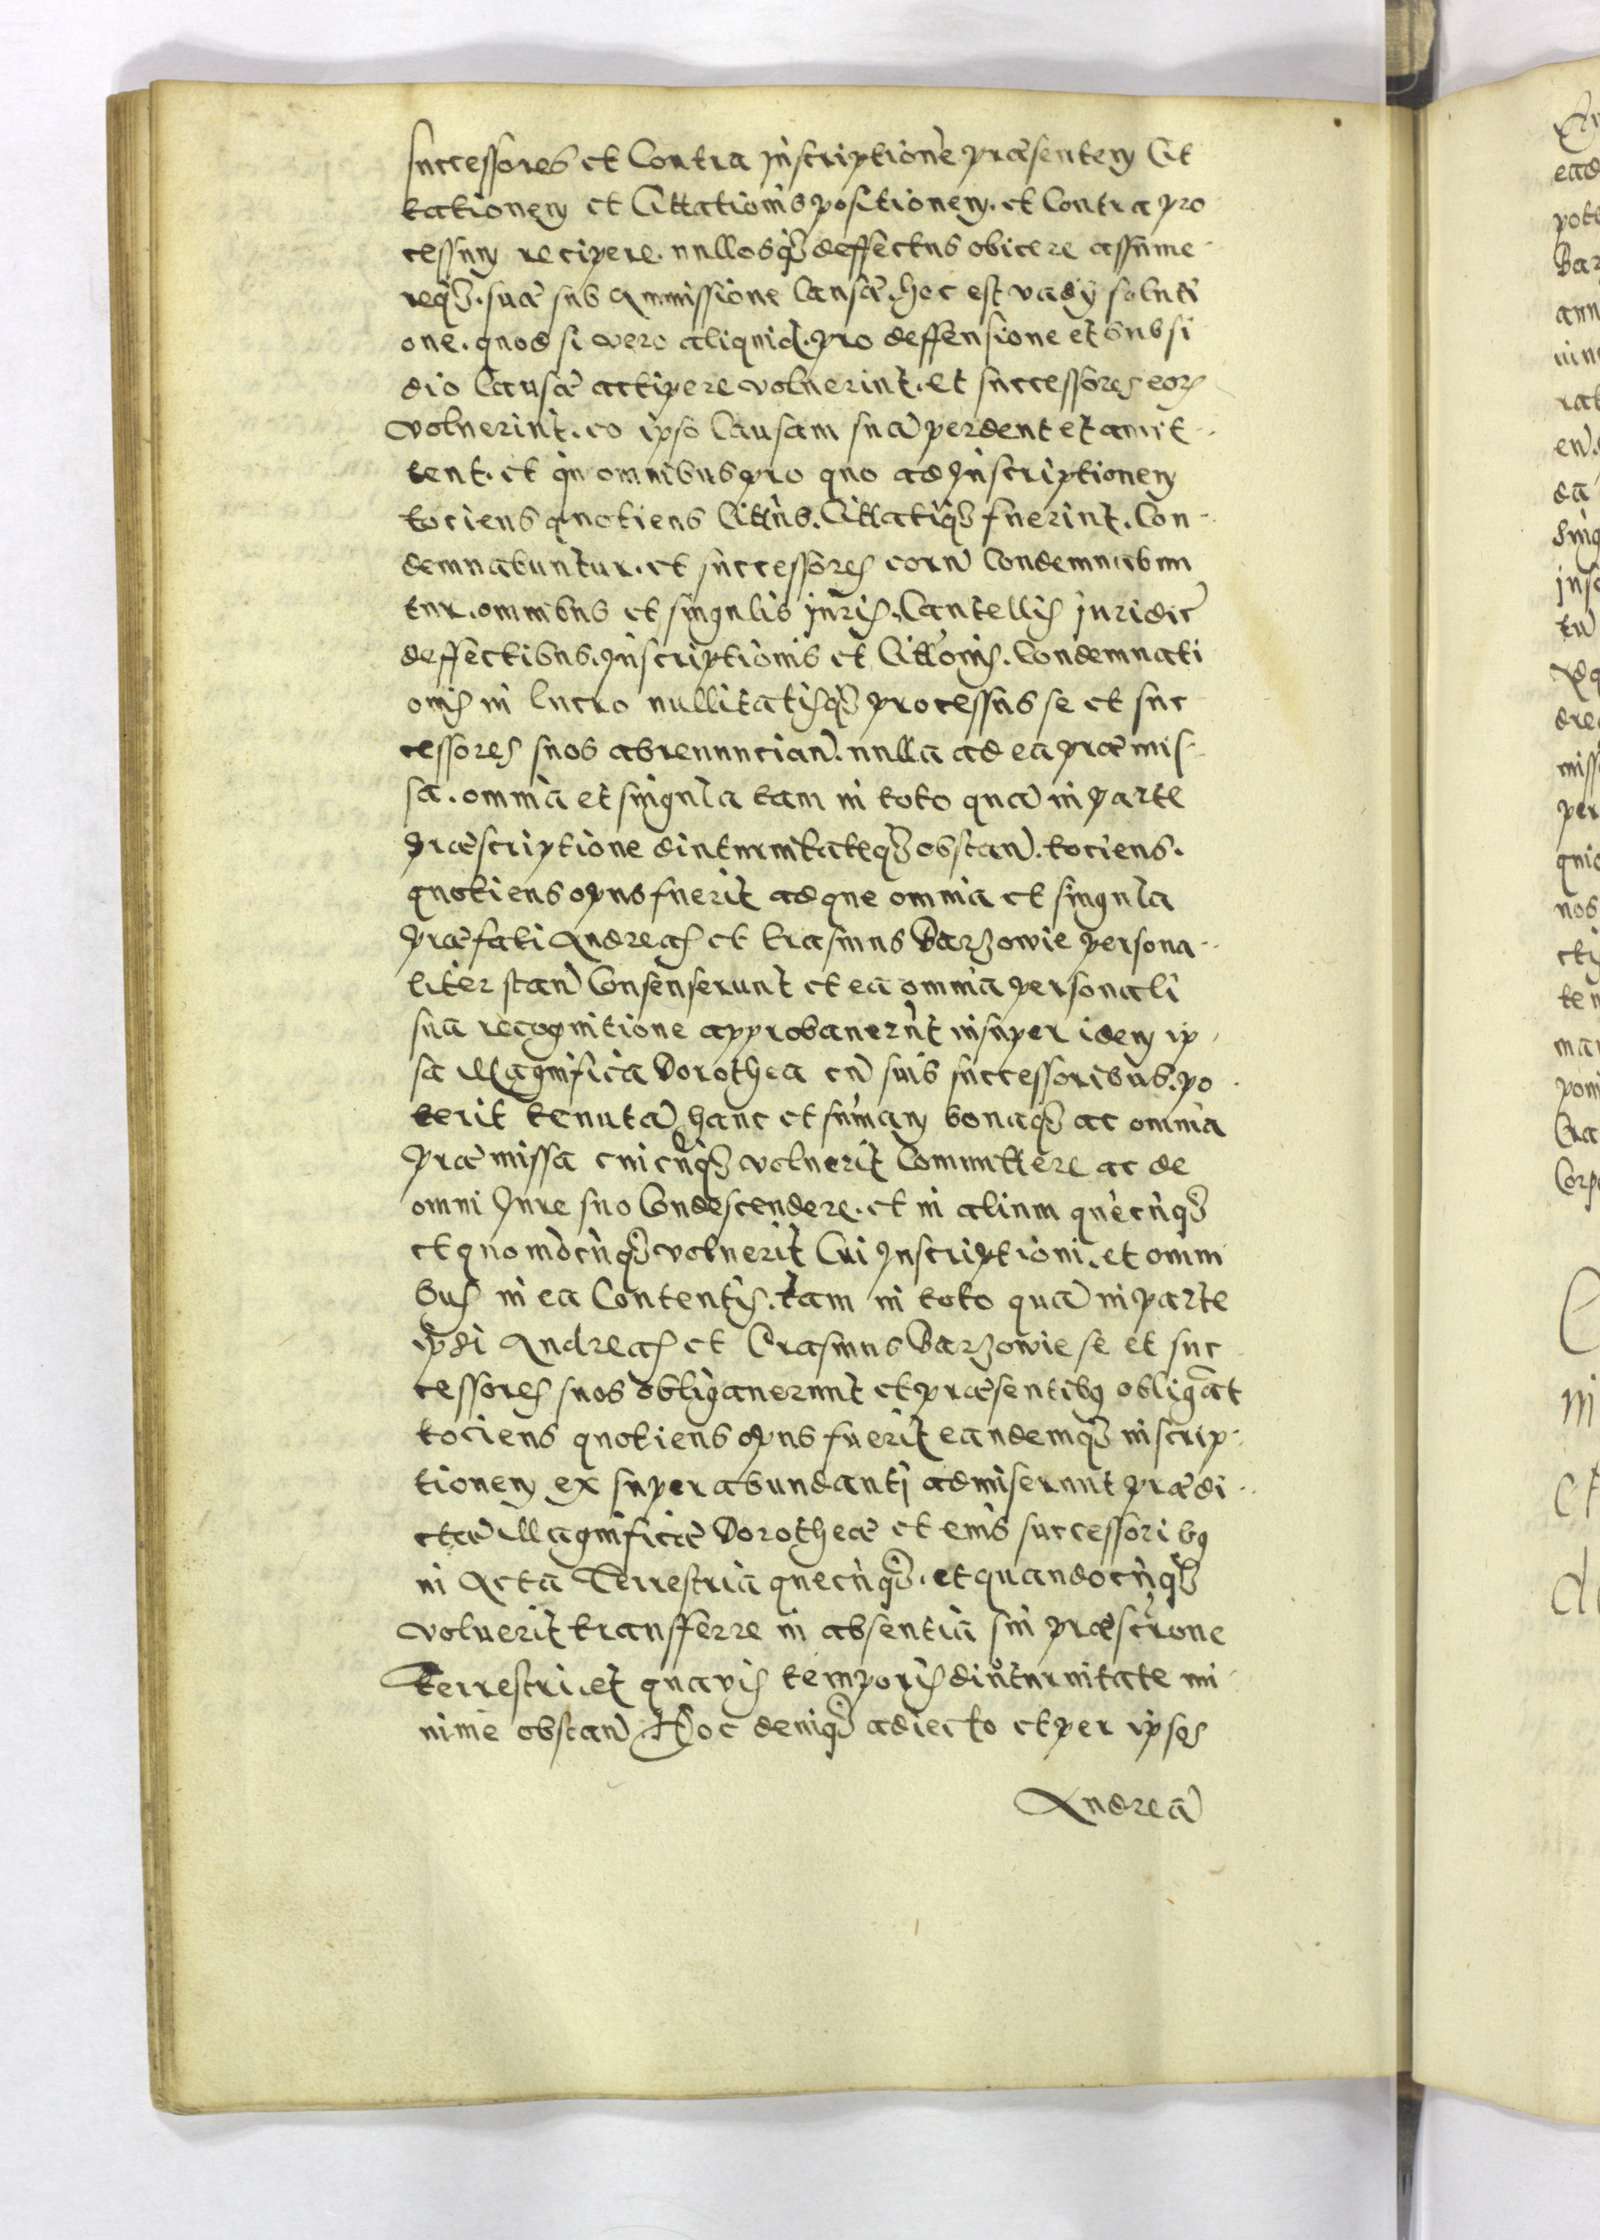 successores et Contra Inscriptionē præsentem Cit
tationem et Cittationis positionem. et Contra pro
cessum recipere. nullosq₃ deffectus obicere assume
req₃. suæ sub Ammissione Causæ. hoc est vadij soluti
one. quod si vero aliquid. pro deffensione et subsi
dio Causæ accipere voluerint. et successores eorꝫ
voluerint. eo ipso Causam suā perdent et amit
tent. et in omnibus pro quo ad Inscriptionem
tociens quotiens Cittūs. Cittatiq₃ fuerint. Con
demnabuntur. et successores eorū Condemnabun
tur. omnibus et singulis juris. Cautellis juridic̄
deffectibus. Inscriptionis et Citto͞nis. Condemnati
onis in lucro nullitatisq₃ processus se et suc
cessores suos abrenuncian̄. nulla ad ea præmis
sa. omnia et singula tam in toto quā in parte
Præscriptione diuturnitateq₃ obstan̄. tociens.
quotiens opus fuerit ad que omnia et singula
Præfati Andreas et Erasmus Barzowie persona
liter stan̄ Consenserunt et ea omnia personali
sua recognitione approbauerūt insuper idem ip
sa Magnifica Dorothea cū suis successoribus. po
terit tenutā hanc et sūmam bonaq₃ ac omnia
Præmissa cuicūq₃ voluerit Committere ac de
omni Jure suo Condescendere. et in alium quēcūq₃
et quomo͞docūq₃ voluerit Cui Inscriptioni. et omni
bus in ea Contentis. tam in toto quā in parte
ip͞i Andreas et Erasmus Barzowie se et suc
cessores suos obligauerunt et præsentibꝫ obligāt
tociens quotiens opus fuerit eandemq₃ inscrip
tionem ex superabundanti admiserunt prædi
ctæ Magnificæ Dorotheæ et eius successoribꝫ
in Acta Terrestria quecūq₃. et quandocūq₃
voluerit transferre in absentia sui præscr͞ione
Terrestri. et quavis temporis diuturnitate mi
nime obstan̄. Hoc deniq₃ adiecto et per ipsos
Andreā